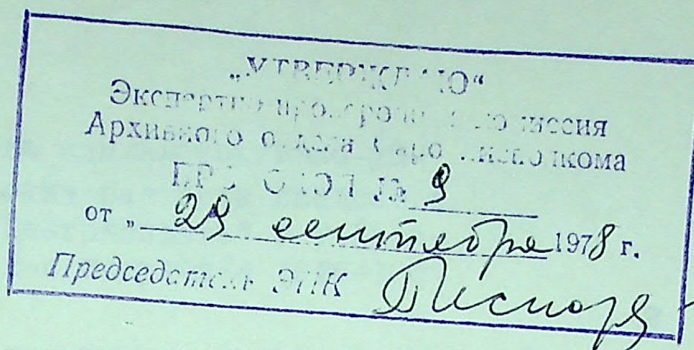 „УТВЕРЖДЕНО“
Экспертно проверочная комиссия
Архивного отдела исполкома
ПРОТОКОЛ № 9
от „ 29 сентября 1978 г.
Председатель ЭПК